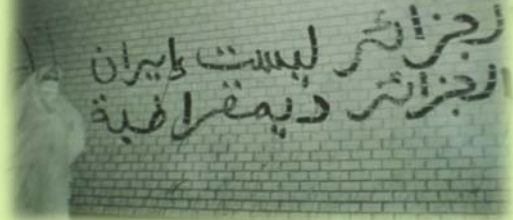 الجزائر ليست إيران
الجزائر ديمقراطية